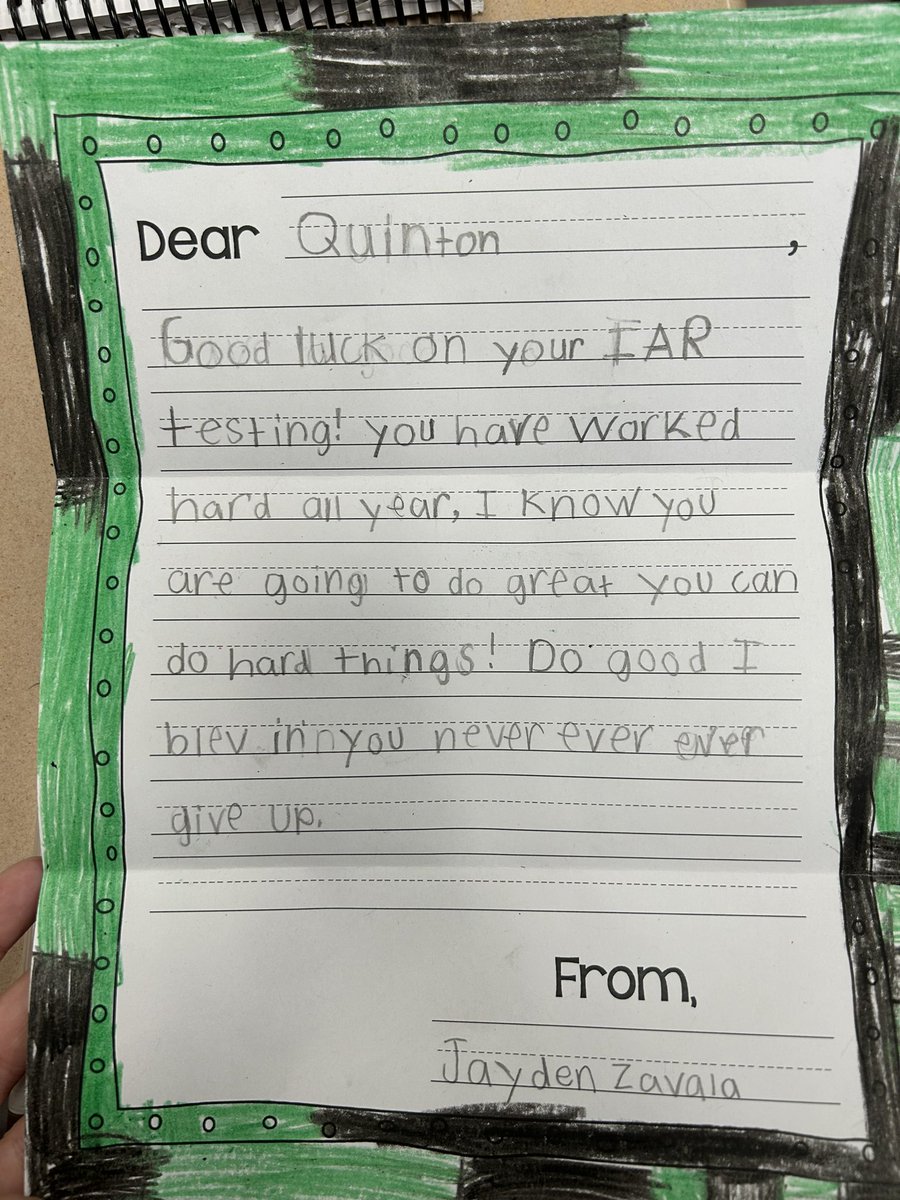 Dear Quinton,
Good luck on your IAR
testing! you have worked
hard all year, I know you
are going to do great you can
do hard things! Do good I
blev in you never ever ever
give up.
From,
Jayden Zavala